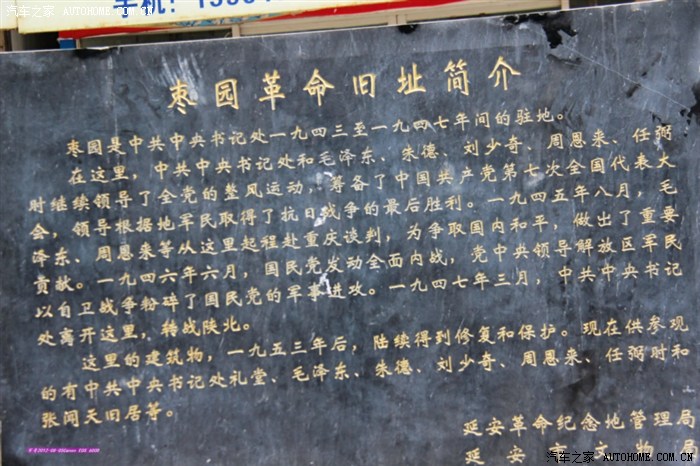 汽车之家 WWW.AUTOHOME.COM.CN
枣园革命旧址简介
枣园是中共中央书记处一九四三至一九四七年间的驻地。
在这里，中共中央书记处和毛泽东、朱德、刘少奇、周恩来、任弼
时继续领导了全党的整风运动，筹备了中国共产党第七次全国代表大
会，领导根据地军民取得了抗日战争的最后胜利。一九四五年八月，毛
泽东、周恩来等从这里起程赴重庆谈判，为争取国内和平，做出了重要
贡献。一九四六年六月，国民党发动全面内战，党中央领导解放区军民
以自卫战争粉碎了国民党的军事进攻。一九四七年三月，中共中央书记
处离开这里，转战陕北。
这里的建筑物，一九五三年后，陆续得到修复和保护。现在供参观
的有中共中央书记处礼堂、毛泽东、朱德、刘少奇、周恩来、任弼时和
张闻天旧居等。
延安革命纪念地管理局
延安市文物局
汽车之家 WWW.AUTOHOME.COM.CN